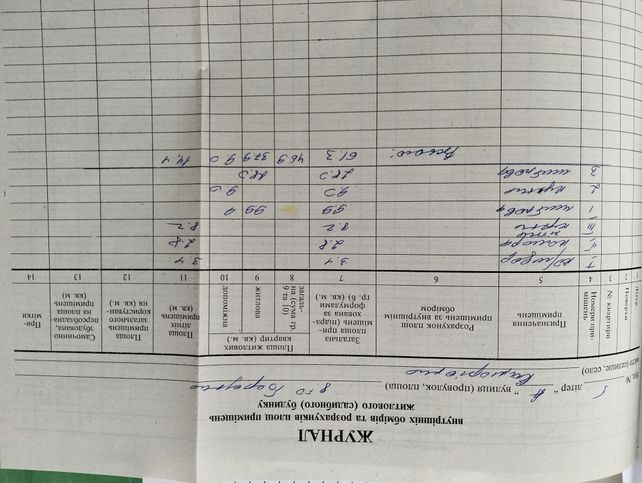 ЖУРНАЛ
внутрішніх обмірів та розрахунків площ приміщень
житлового (садибного) будинку
місто (селище, село)
літер " А " вулиця (провулок, площа) 8 го Березня
Літер
Поверхи
№ квартири
Номери приміщень
Призначення приміщення
Розрахунок площ приміщень за внутрішнім обміром
Загальна площа приміщень (підрахована за формулами гр. 6) (кв. м.)
Площа житлових квартир (кв. м.)
загальна (сума гр. 9 та 10)
житлова
допоміжна
Площа літніх приміщень (кв. м.)
Площа приміщень загального користування (кв. м.)
Самочинно збудована, переобладнана площа приміщень (кв. м.)
Примітки
1 2 3 4 5 6 7 8 9 10 11 12 13 14
I коридор 3.4 3.4
II комора 2.8 2.8
III літня кухня 8.2 8.2
1 житлова 9.9 9.9
2 кухня 9.0 9.0
3 житлова 28.0 28.0
Всього: 61.3 46.9 37.9 9.0 14,4